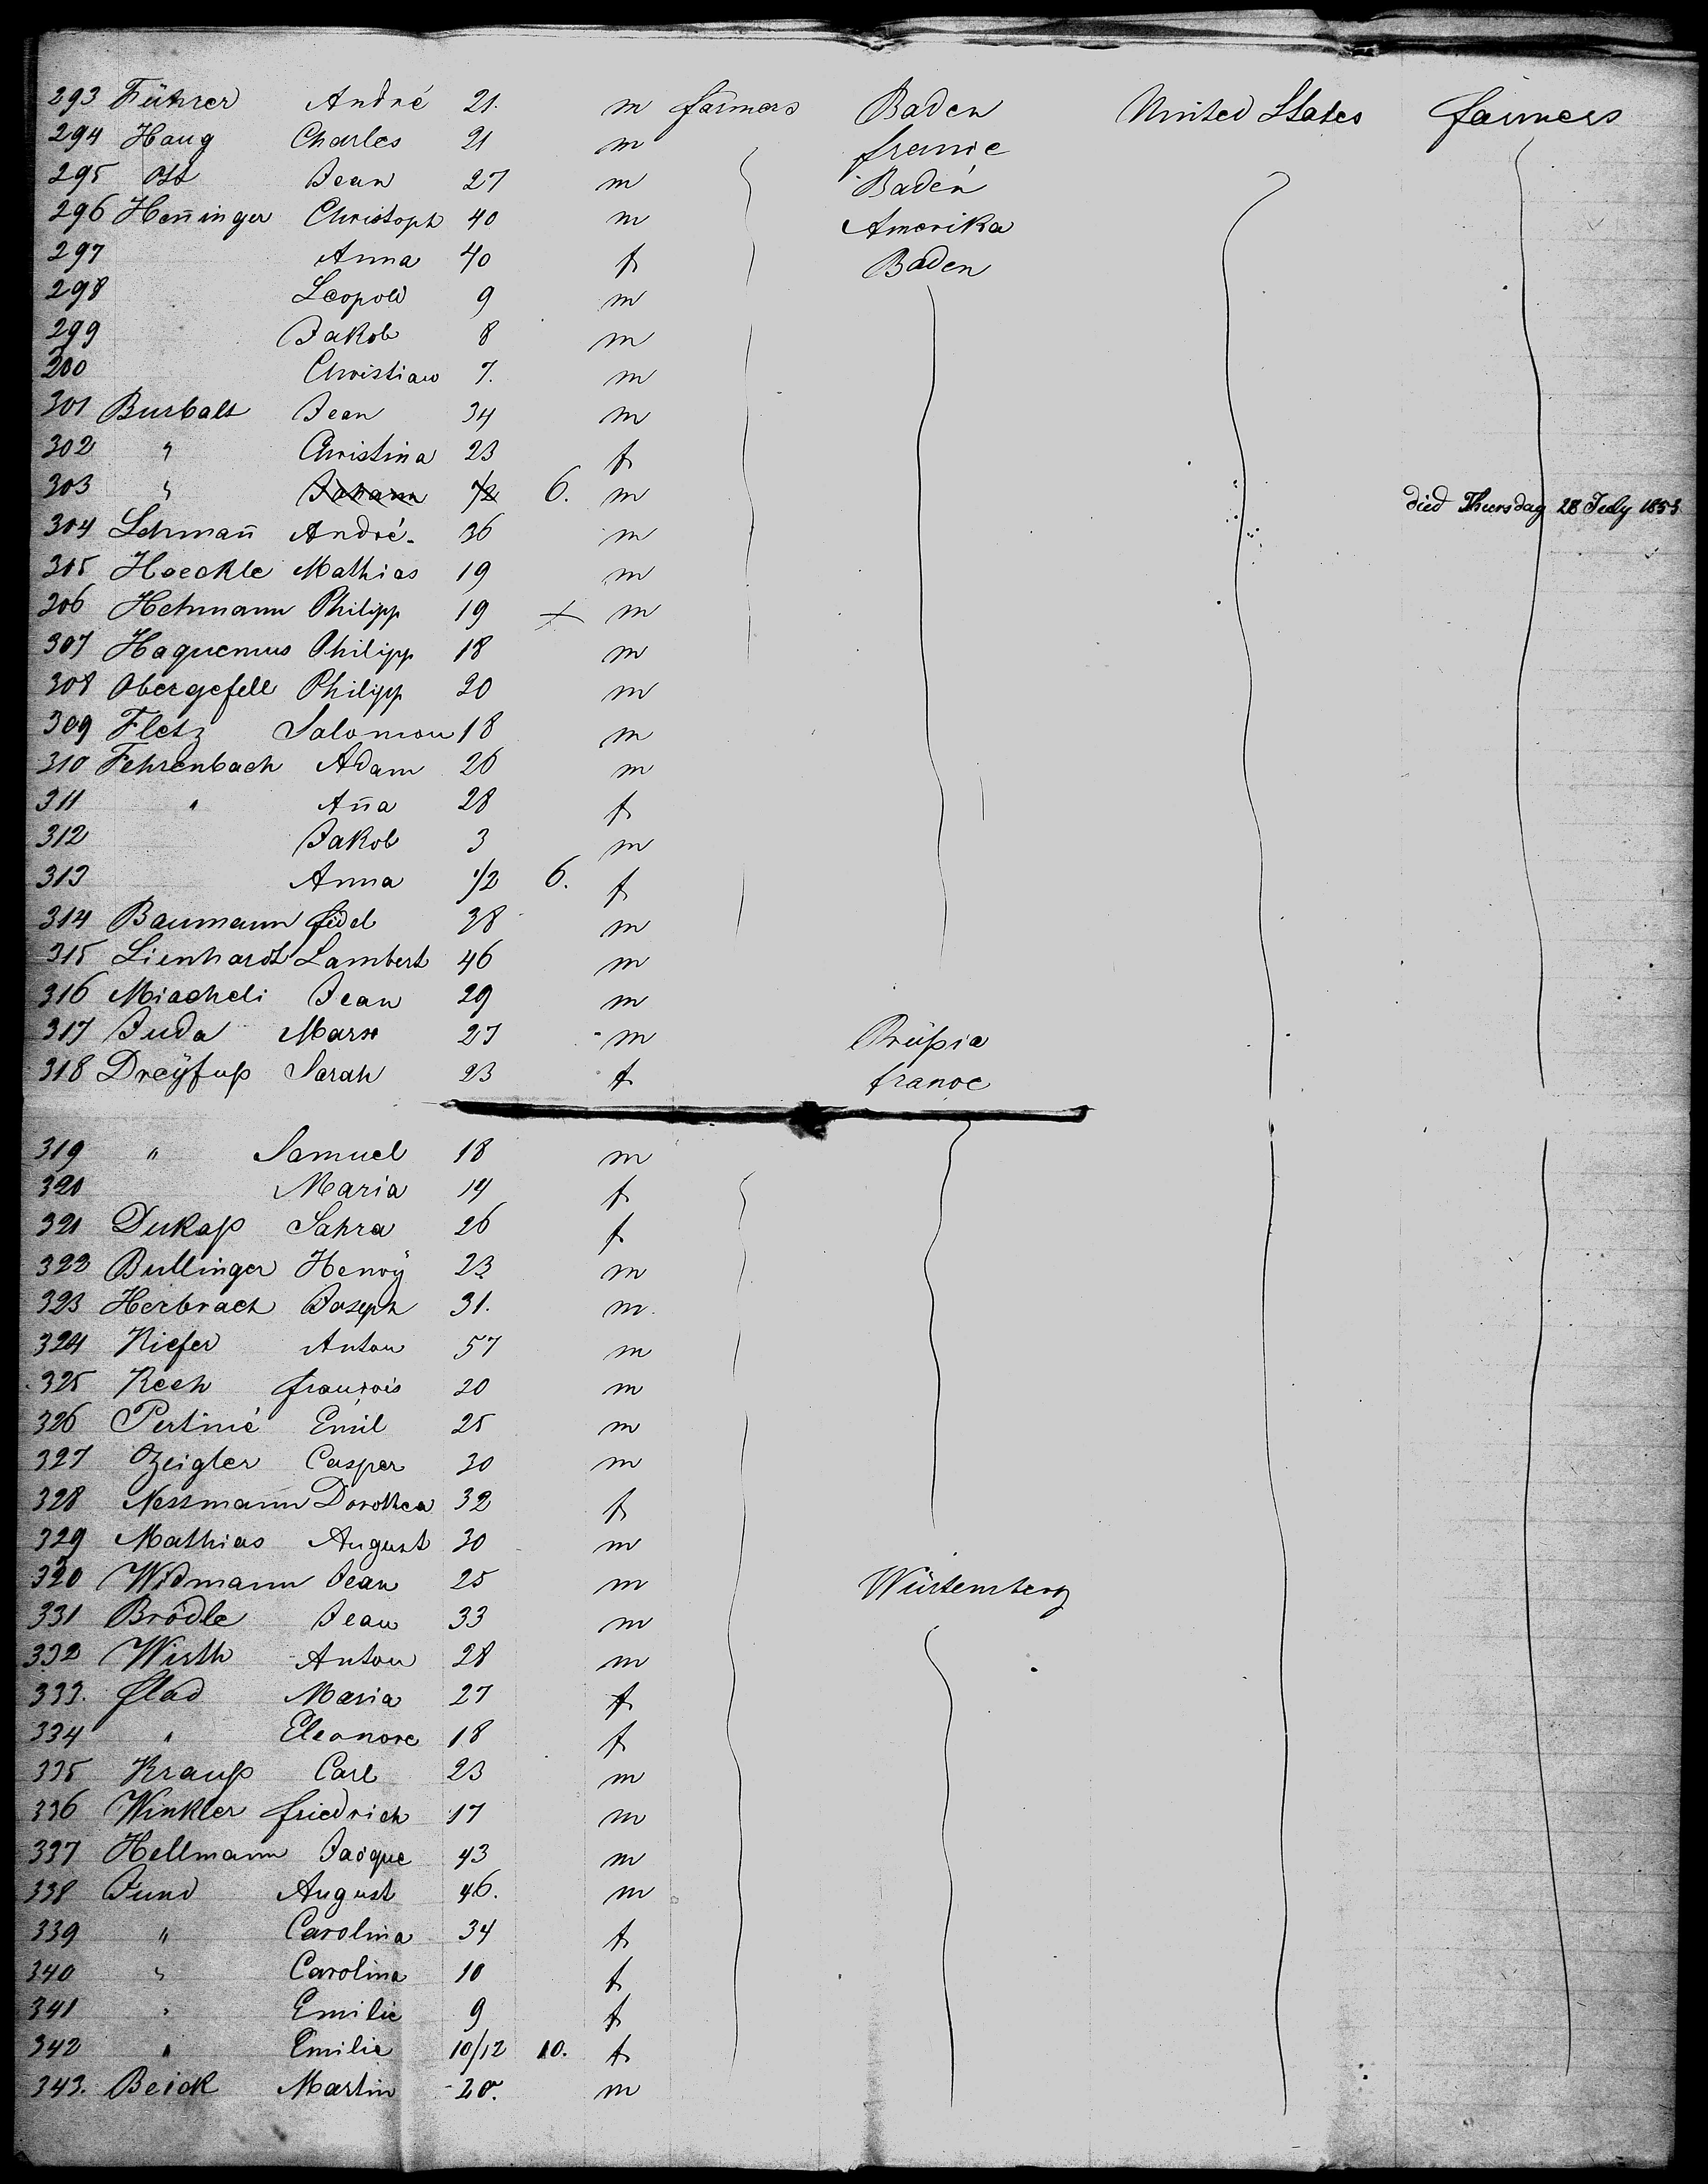 293 Führer André 21. m farmers Baden United States farmers
294 Haug Charles 21 m france
295 Ott Jean 27 m Baden
296 Heñinger Christoph 40 m Amerika
297 Anna 40 f Baden
298 Leopold 9 m
299 Jakob 8 m
300 Christian 7. m
301 Burbalt Jean 34 m
302 " Christina 23 f
303 " Johann 1/2 6. m died Thursday 28 July 1853
304 Lehmañ André. 36 m
305 Hoeckle Mathias 19 m
306 Hehmann Philipp 19 x m
307 Haquemus Philipp 18 m
308 Obergefell Philipp 20 m
309 Fletz Salomon 18 m
310 Fehrenbach Adam 26 m
311 " Aña 28 f
312 Jakob 3 m
313 Anna 1/2 6. f
314 Baumann fidel 38 m
315 Lienhardt Lambert 46 m
316 Miacheli Jean 29 m
317 Juda Marx 27 m Prüßia
318 Dreÿfuß Sarah 23 f france
319 " Samuel 18 m
320 Maria 14 f
321 Dukaß Sahra 26 f
322 Bullinger Henrÿ 23 m
323 Herbrach Joseph 31. m.
324 Kiefer Anton 57 m
325 Kech francois 20 m
326 Pertinié Emil 25 m
327 Zeigler Casper 30 m
328 Nessmann Dorothea 32 f
329 Mathias August 30 m
330 Widmann Jean 25 m Würtemberg
331 Brödle Jean 33 m
332 Wirth Anton 28 m
333. flad Maria 27 f
334 " Eleonore 18 f
335 Krauß Carl 23 m
336 Winkler friedrich 17 m
337 Hellmann Jacque 43 m
338 Jund August 46. m
339 " Carolina 34 f
340 " Carolina 10 f
341 " Emilie 9 f
342 " Emilie 10/12 10. f
343. Beick Martin 20. m